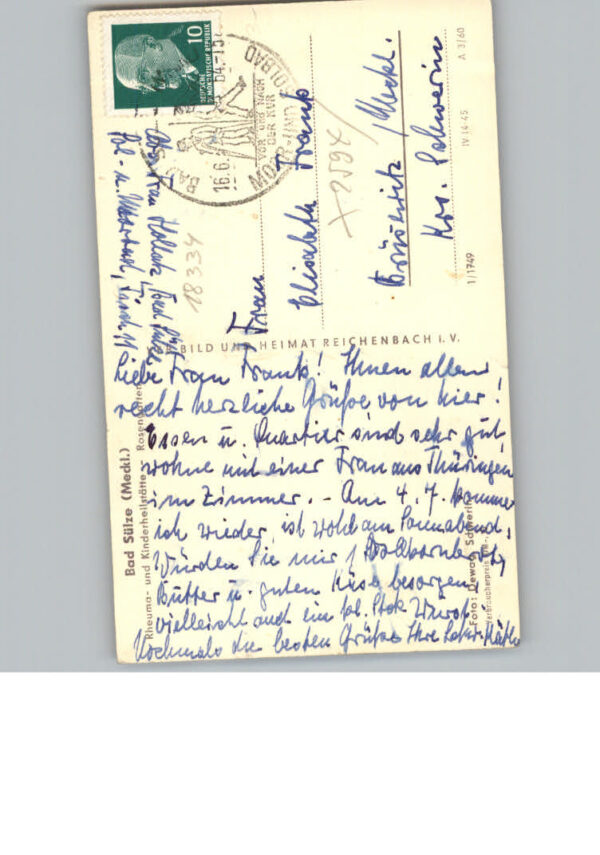 Bad Sülze (Meckl.)
Rheuma- und Kinderheilstätte - Rosengarten
Liebe Frau Frank! Ihnen allen
recht herzliche Grüße von hier!
Essen u. Quartier sind sehr gut,
wohne mit einer Frau aus Thüringen
im Zimmer. - Am 4. 7. komme
ich wieder, ist wohl am Sonnabend,
Würden Sie mir 1 Vollkornbrot,
Butter u. guten Käse besorgen,
vielleicht auch ein kl. Stck Wurst.
Nochmals die besten Grüße Ihre
BILD UND HEIMAT REICHENBACH I. V.
Abs. Frau Bad Sülze
Sol- u. Moorbad,
18334
10
DEUTSCHE
DEMOKRATISCHE REPUBLIK
BAD
16.6.64.-15
VOR UND NACH
DER KUR
MOOR- UND SOLBAD
Frau
Elisabeth Frank
X 2594
Brüsewitz /Meckl.
Krs. Schwerin
1/1749 IV 14-45 A 3/60
Foto: Dewag, Schwerin